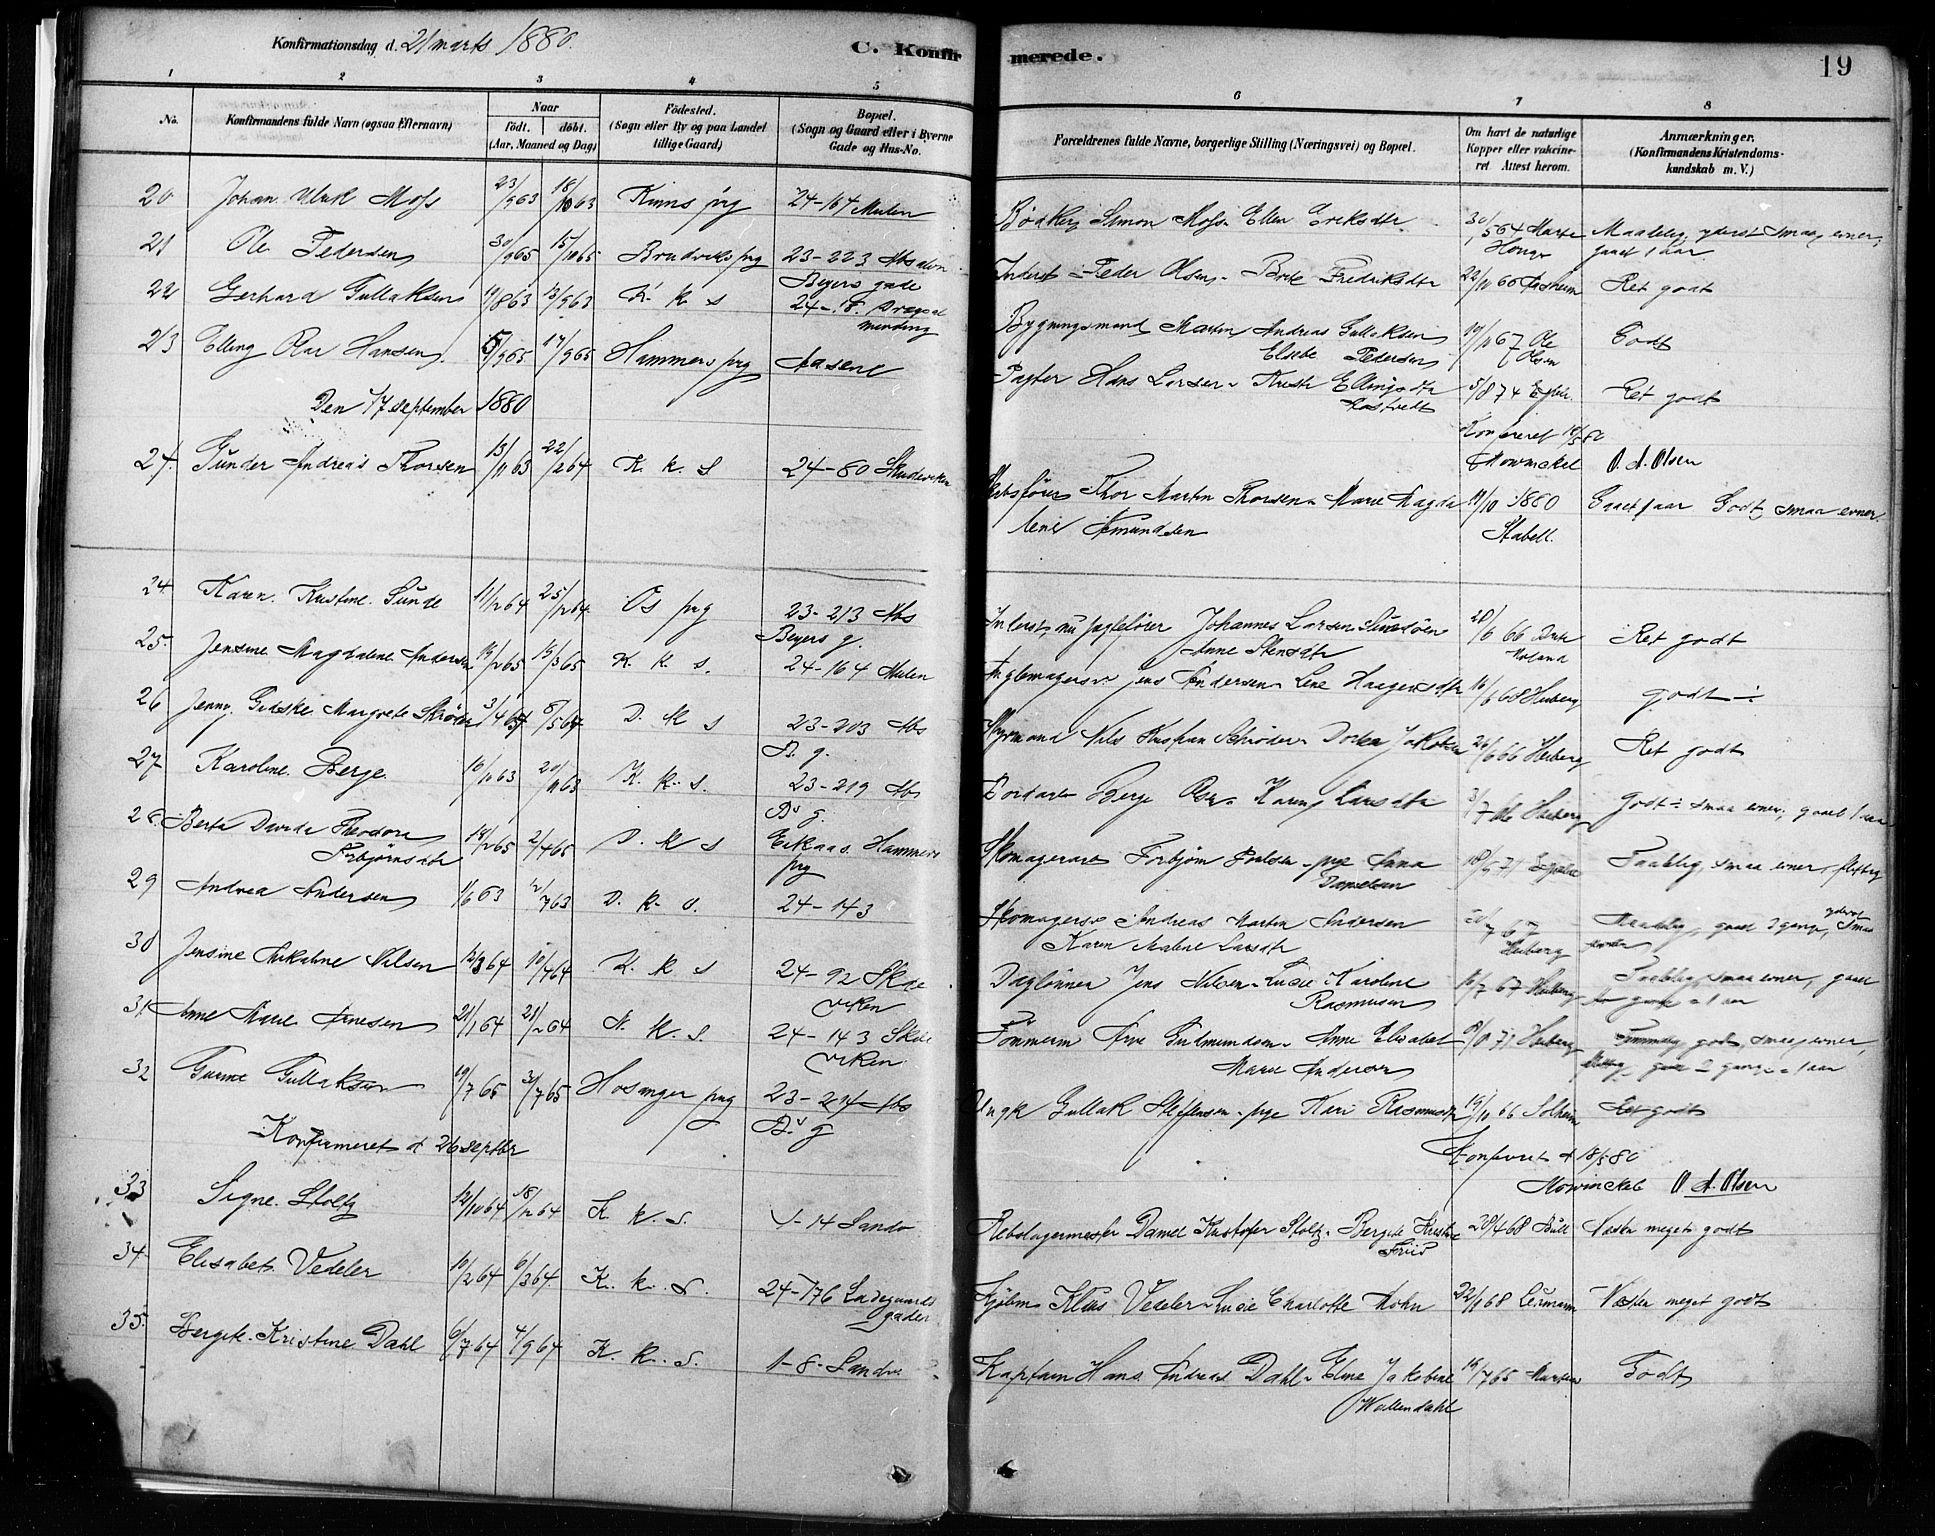 Konfirmationsdag d. 21 marts 1880.
C. Konfirmerede.
19
1 2 3 4 5 6 7 8
No.
Konfirmandens fulde Navn (ogsaa Efternavn)
Naar
födt. döbt.
(Aar, Maaned og Dag)
Födested.
(Sogn eller By og paa Landet
tillige Gaard)
Bopæl.
(Sogn og Gaard eller i Byerne
Gade og Hus-No.
Forældrenes fulde Navne, borgerlige Stilling (Næringsvei) og Bopæl.
Om havt de naturlige
Kopper eller vakcine-
ret Attest herom.
Anmærkninger.
(Konfirmandens Kristendoms-
kundskab m. V.)
20 Johan Ulrik Mohs 23/9 63 18/10 63 Kinns prg 24-164 Mulen
Bødker Simon Mohs Ellen Eriksdtr 30/5 64 Maadelig, yderst smaa evner,
gaaet 1 aar
21 Ole Pedersen 30/9 65 15/10 65 Bruviks prg 23-223 Absalon
Beyers gade
Inderst Peder Olsen Brite Fredriksdtr 22/11 66 Ret godt
22 Gerhard Gullaksen 19/8 63 13/9 63 K. k. s 24-
Bygningsmand Martin Andreas Gullaksen
Elsebe Pedersen 19/11 67 Ole
Olsen Godt
23 Elling Hansen 5/9 65 17/9 65 Hammers prg Aasene
Hans Larsen Elling dtr 5/8 74 Ret godt
Den 17 september 1880
Konfereret 18/5 80
Mowinckel O. A. Olsen
24. Gunder Andreas Thorsen 13/11 63 22/2 64 K. k. S 24-80 Skudeviken
Skibsfører Thor Martin Thorsen Marie Magda
lene Amundsen 19/10 1880
Stabell. Gaaet 1 aar Godt, smaa evner.
24. Karen Kristine Sunde 11/12 64 25/12 64 Os prg 23-213 Abs
Beyers g.
Inderst, nu jagtefører Johannes Larsen
Anne Stensdtr 28/6 66 Ret godt
25. Jensine Magdalene Andersen 19/2 65 19/3 65 K. k. s. 24-164 Mulen
Jens Andersen Lene 16/6 68 Heiberg godt ÷
26 Jenny Gidske Margrete Skrøder 3/4 64 8/5 64 D. K S 23-203 Abs
B. g.
Styrmand Nils Kristian Schrøder Dorthea Jakobsen 26/6 66 Heiberg Ret godt
27 Karoline Berge 16/10 63 20/11 63 K. k. s. 23-219 Abs
B. g.
Berge Olsen Karen Larsdtr 3/7 Heiberg Godt ÷ smaa evner, gaaet 1 aar
28. Berta Davida Theodora
Torbjørnsdtr 18/2 65 2/4 65 D. K S Eikaas. Hammers
prg
Skomagerar Torbjørn Poulsen pge Anna
Danielsen 18/9 71 Taalelig, smaa evner, flittig
29 Andrea Andersen 1/6 63 12/7 63 D. K. S. 24-143
Skomagersv. Andreas Martin Andersen
Karen Malene Larsdtr 20/7 67
Heiberg Maadelig, gaaet 2 gange, yderst smaa
evner
30 Jensine Nilsen 12/3 64 10/4 64 K. k s 24-92 Skude
viken
Daglønner Jens Nilsen Lucie Karoline
Rasmussen 16/7 67 Heiberg Taalelig, smaa evner, gaaet
gange = 1 aar
31. Anne Marie Arnesen 21/1 64 21/2 64 N. K. S. 24-143 Skude
viken
Tømmerm Arne Gudmundsen Anne Elisabet
Marie Andersen 71 Heiberg godt, smaa evner,
gaaet 2 gange = 1 aar
32 Gurine Gullaksen 19/7 65 31/7 65 Hosanger prg 23-214 Abs
B. g
Ungk Gullak Steffensen pge Kari Rasmusdtr 19/11 66 Solheim Ret godt
Konfirmeret d 26 septbr
Konfereret d 18/5 80
Mowinckel O. A. Olsen
33 Signe Stoltz 12/10 64 18/12 64 K k. S. 1-14 Sandv
Rebslagermester Daniel Kristofer Stoltz Bergite Kristine
Friis 28/4 68 Bull Næsten meget godt
34. Elisabet Vedeler 10/2 64 6/3 64 K. k. S. 24-176 Ladegaards
gaden
Kjøbm Klaus Vedeler Lucie Charlotte Mohn 22/9 68 Næsten meget godt
35. Bergite Kristine Dahl 6/7 64 4/9 64 K. k. S. 1-8 Sandv.
Kaptein Hans Andreas Dahl Eline Jakobine
Wallendahl 19/7 65 Godt